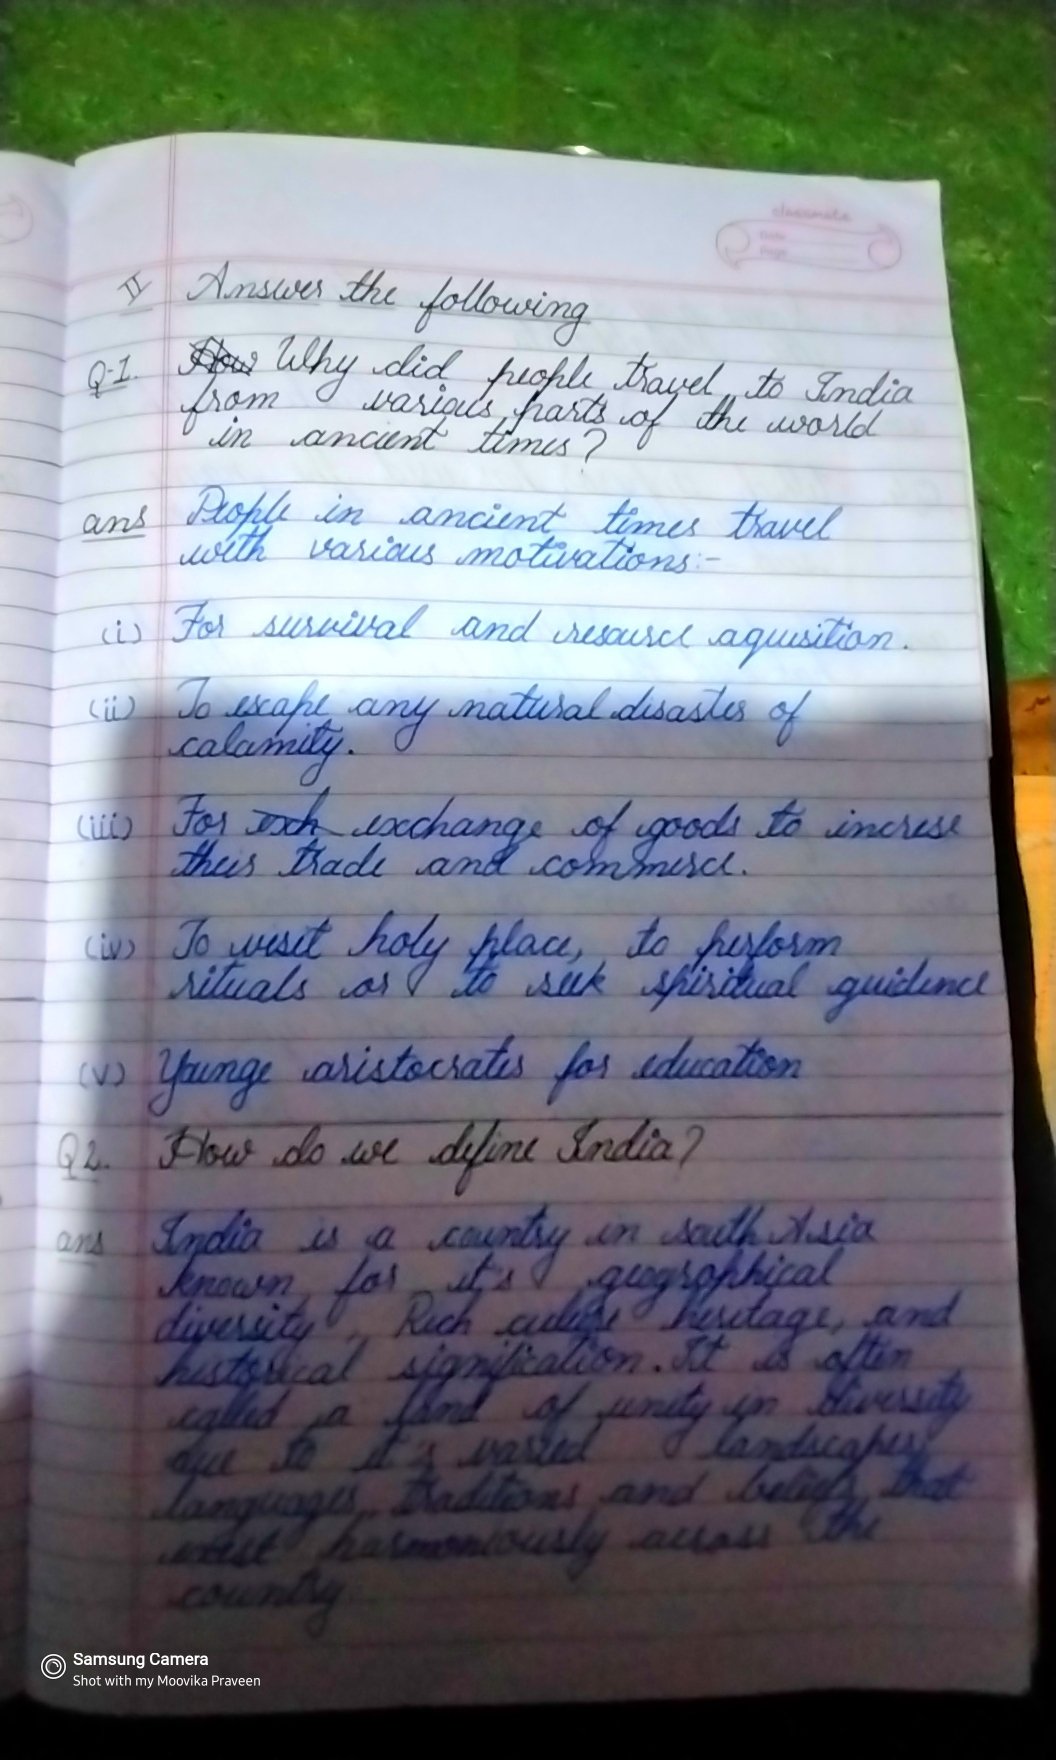 classmate
Date
Page
II Answer the following
Q-1. How Why did people travel to India
from various parts of the world
in ancient times?
ans People in ancient times travel
with various motivations:-
(i) For survival and resource aqusition.
(ii) To escape any natural disaster of
calamity.
(iii) For exch exchange of goods to increse
their trade and commerce.
(iv) To visit holy place, to perform
rituals or to seek spiritual guidence
(v) Younge aristocrates for education
Q2. How do we define India?
ans India is a country in south Asia
known for it's geogrophical
diversity, Rich culture heritage, and
historical signification. It is often
called a land of unity in diversity
due to it's varied landscapes,
languages, traditions and beliefs that
exist harmoniously across the
country
Samsung Camera
Shot with my Moovika Praveen